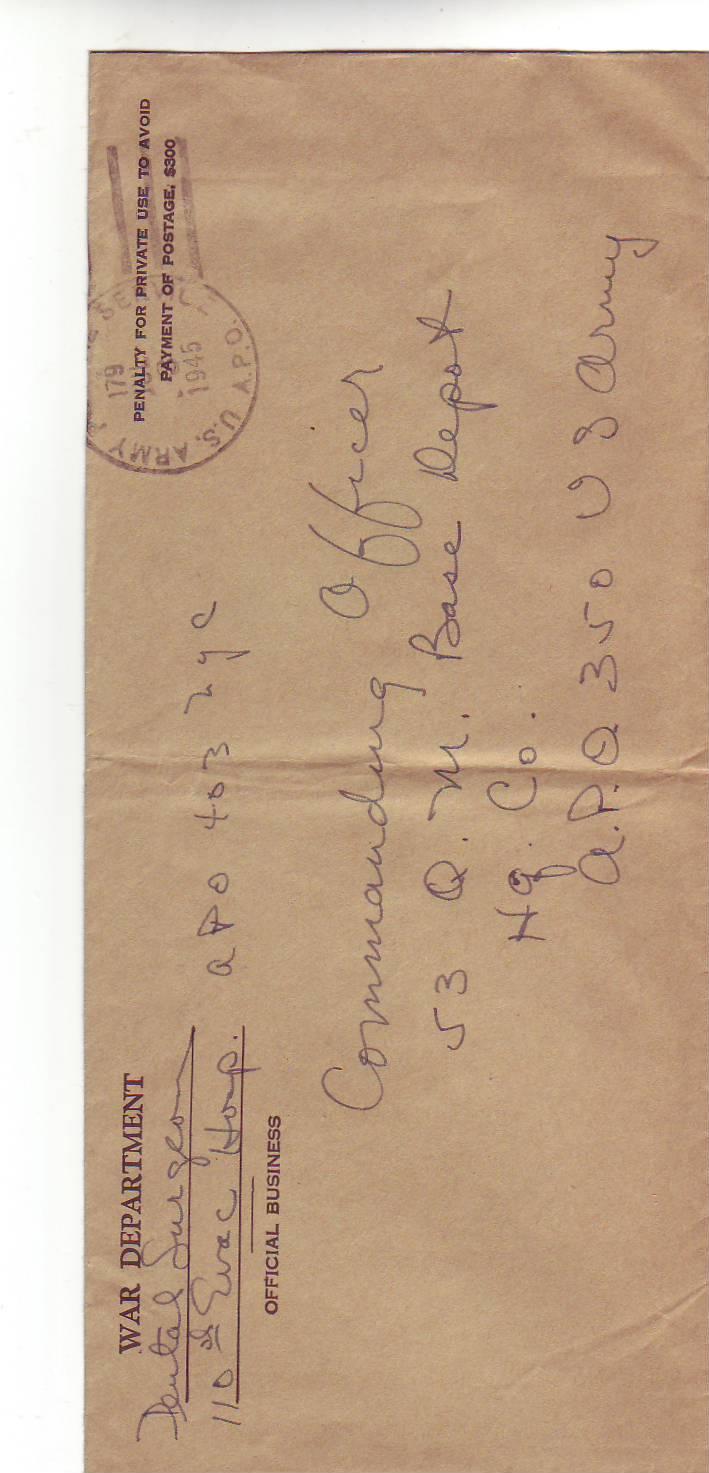 WAR DEPARTMENT
Dental Surgeon
110th Evac Hosp. APO 403 NYC
OFFICIAL BUSINESS
PENALTY FOR PRIVATE USE TO AVOID
PAYMENT OF POSTAGE, $300
U.S. ARMY
179
1945
A.P.O.
Commanding Officer
53 Q. M. Base Depot
Hq. Co.
A.P.O 350 US Army